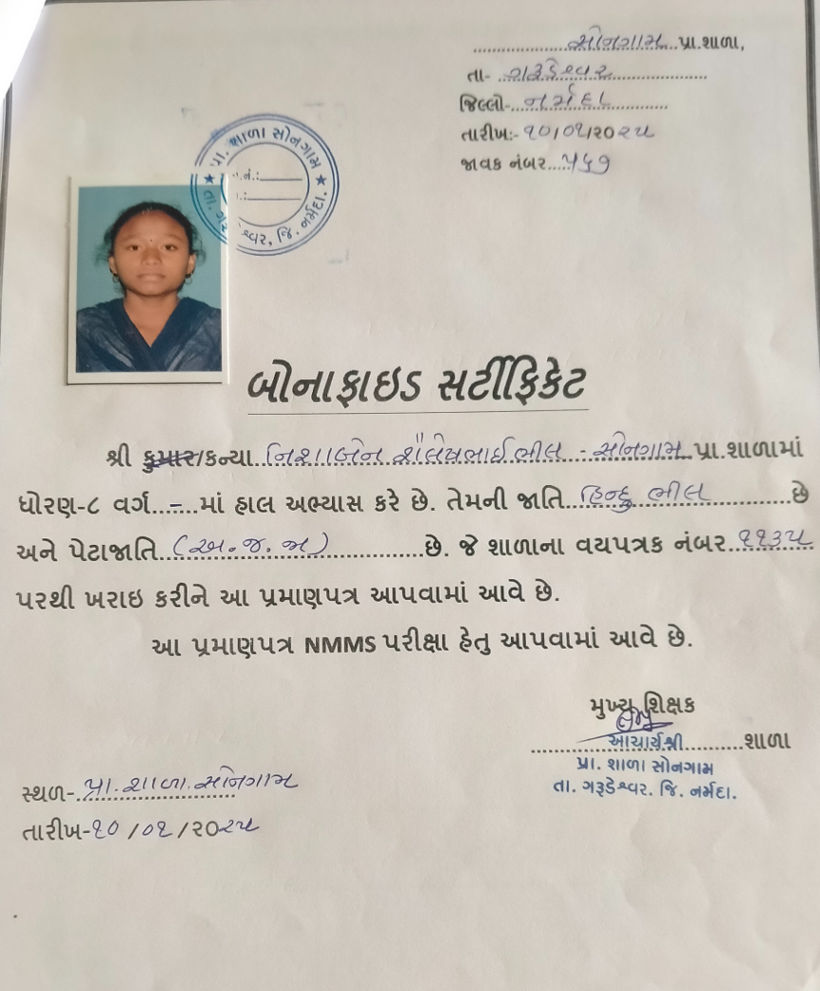 સોનગામ પ્રા.શાળા,
તા- ગરૂડેશ્વર
જિલ્લો- નર્મદા
તારીખ:- ૧૦/૦૧/૨૦૨૫
જાવક નંબર ૫૬૧
પ્રા. શાળા સોનગામ
તા. ગરૂડેશ્વર, જિ. નર્મદા.
બોનાફાઇડ સર્ટીફિકેટ
શ્રી કુમાર/કન્યા નિશાબેન શૈલેષભાઈ ભીલ - સોનગામ પ્રા.શાળામાં
ધોરણ-૮ વર્ગ - માં હાલ અભ્યાસ કરે છે. તેમની જાતિ હિન્દુ ભીલ છે
અને પેટાજાતિ (અ.જ.જા) છે. જે શાળાના વયપત્રક નંબર ૧૧૩૫
પરથી ખરાઇ કરીને આ પ્રમાણપત્ર આપવામાં આવે છે.
આ પ્રમાણપત્ર NMMS પરીક્ષા હેતુ આપવામાં આવે છે.
મુખ્ય શિક્ષક
આચાર્યશ્રી શાળા
પ્રા. શાળા સોનગામ
તા. ગરૂડેશ્વર. જિ. નર્મદા.
સ્થળ- પ્રા.શાળા.સોનગામ
તારીખ-૧૦/૦૧/૨૦૨૫